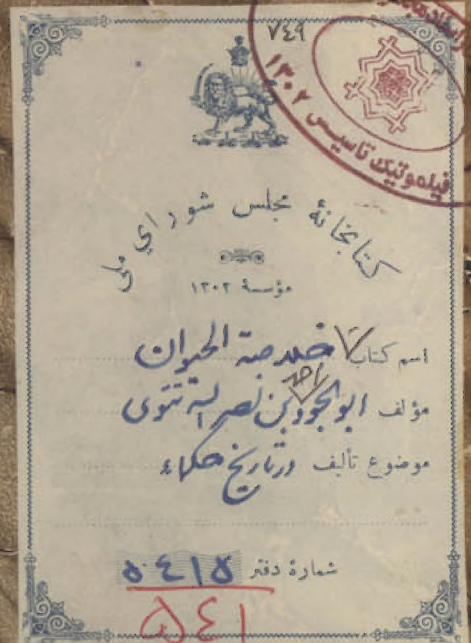 ۷۴۹
فیلموتیک تاسیس ۱۳۰۲
کتابخانهٔ مجلس شورای ملی
مؤسسهٔ ۱۳۰۲
اسم کتاب خلاصة الحیوان
مؤلف ابوالجود بن نصر الله تتوی
احمد
موضوع تألیف در تاریخ حکماء
شمارهٔ دفتر ۵۴۱۵
۵۴۱